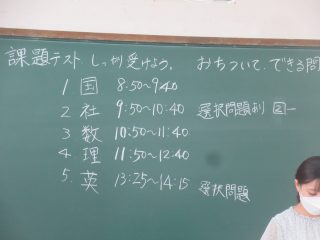 課題テスト しっかり受けよう。 おちついて、できる問
1 国 8:50〜9:40
2 社 9:50〜10:40 選択問題あり
3 数 10:50〜11:40
4 理 11:50〜12:40
5. 英 13:25〜14:15 選択問題